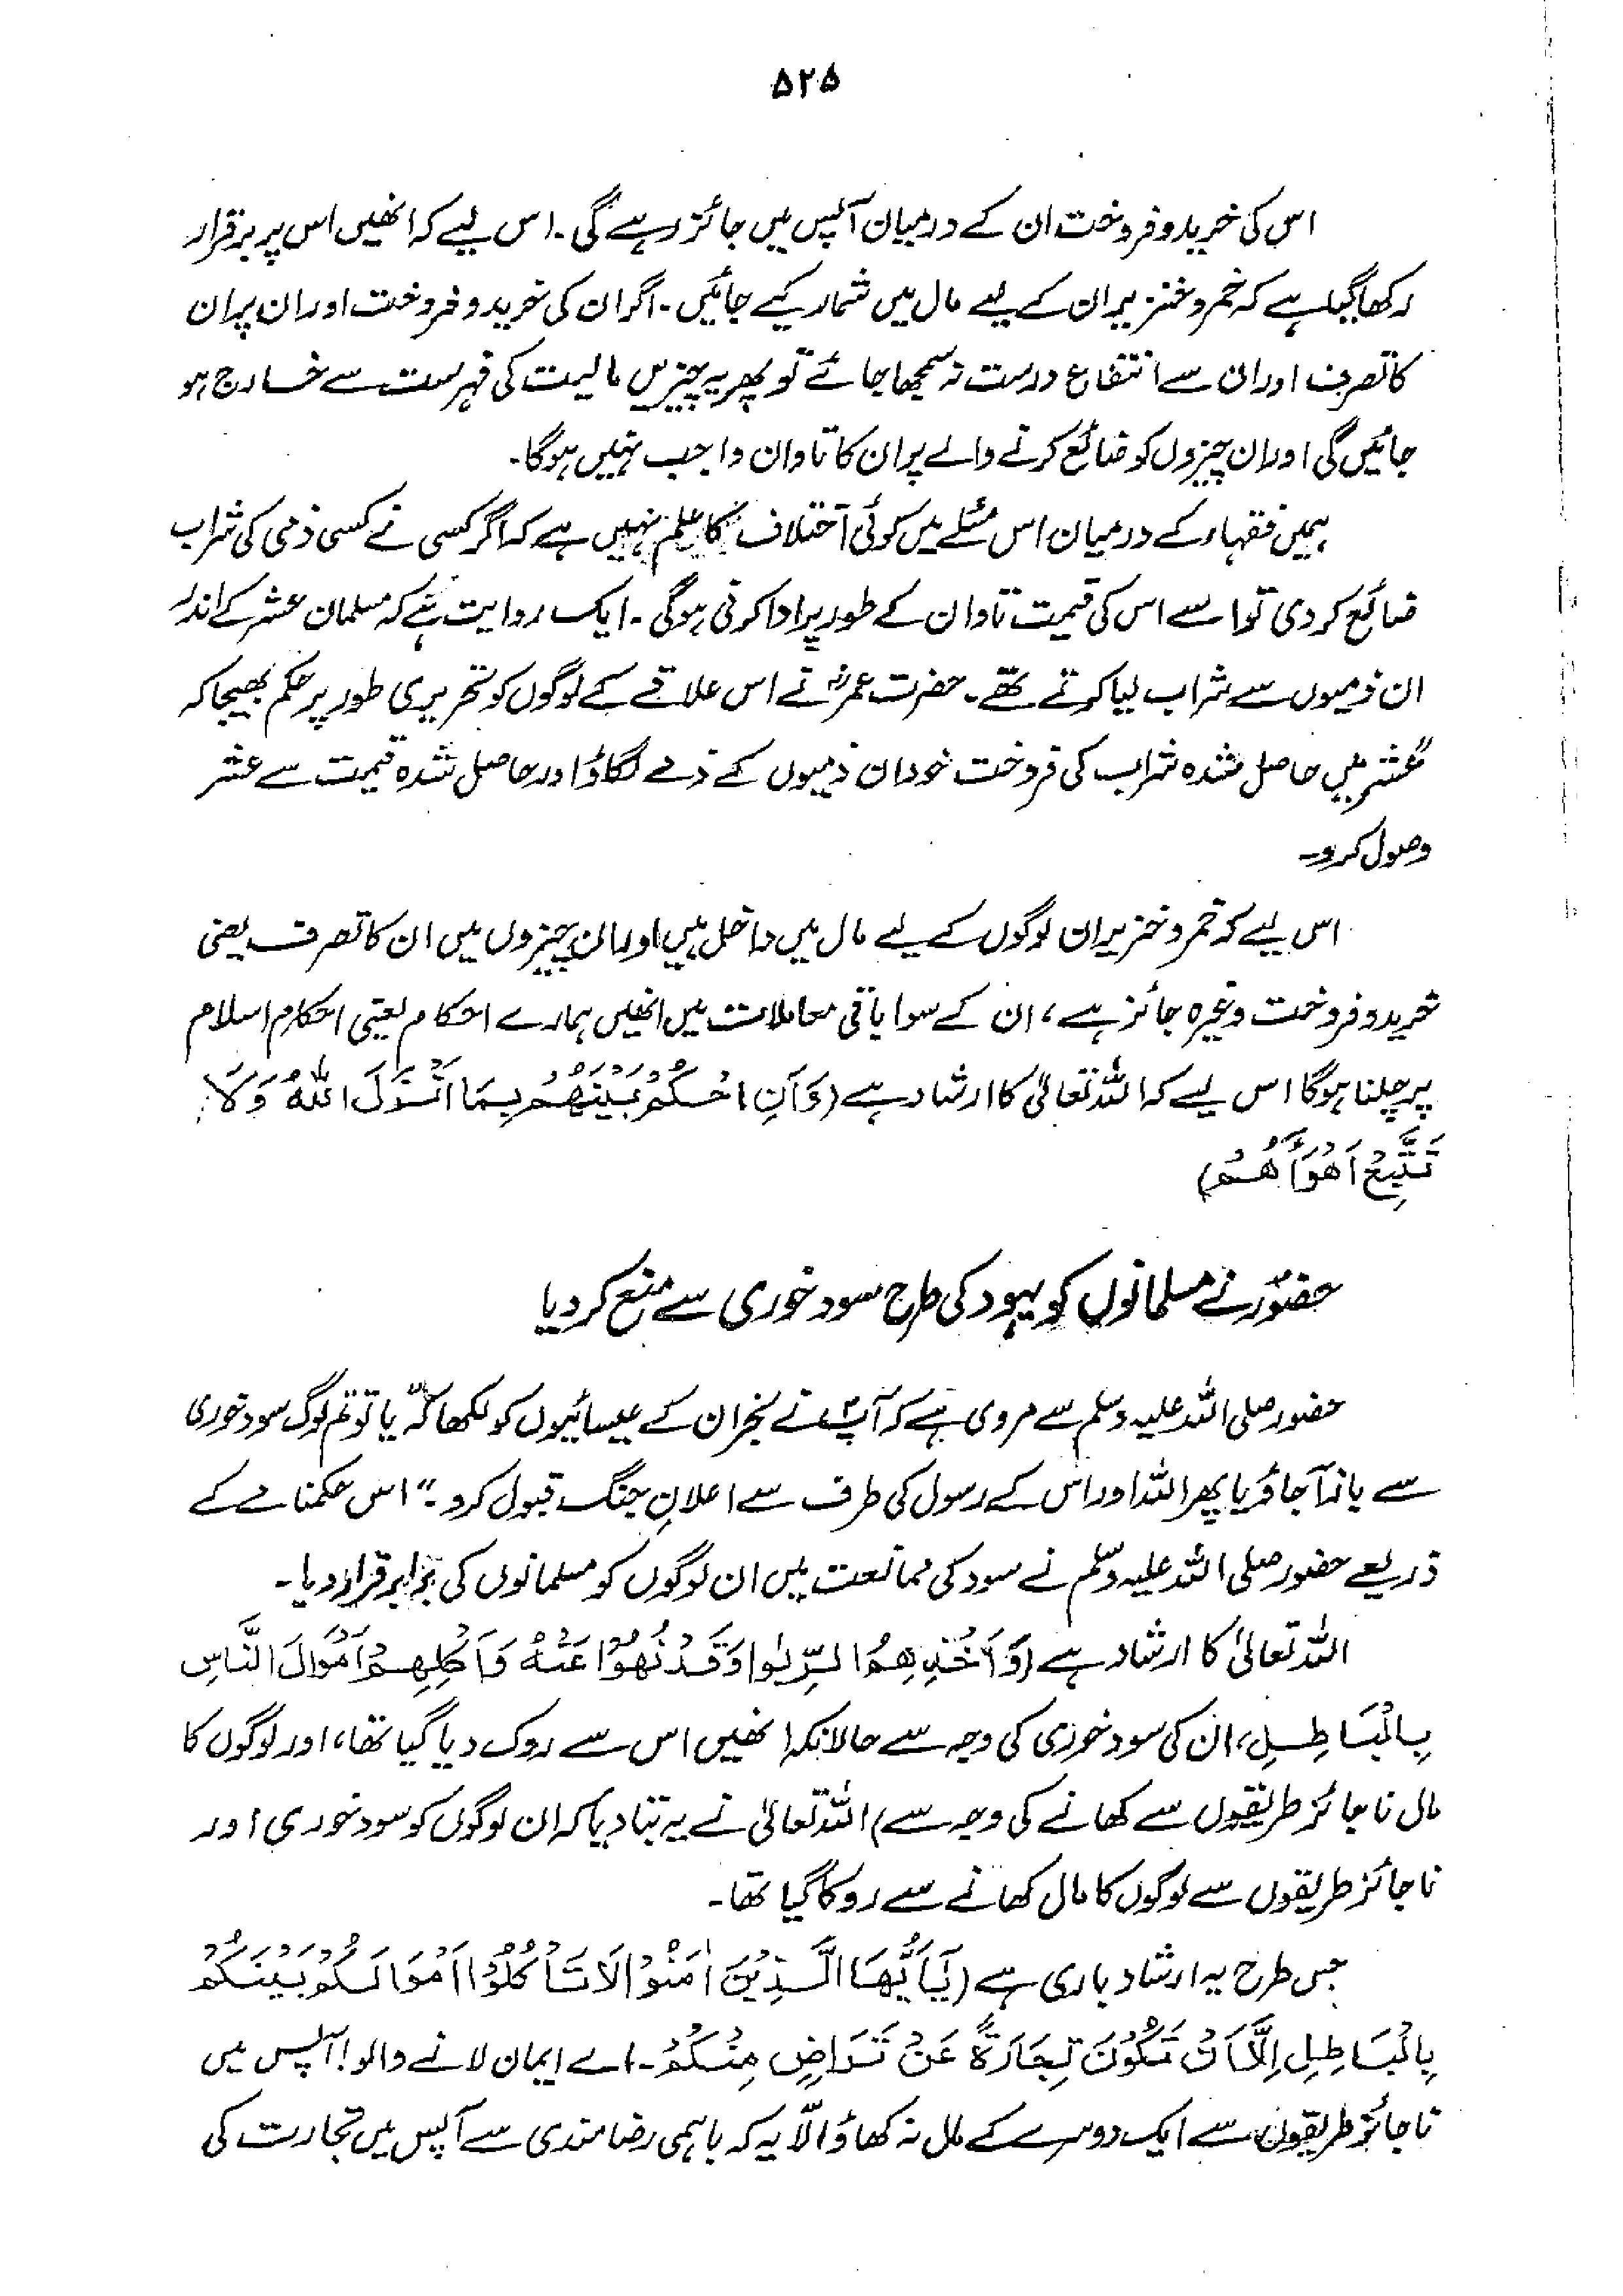 ۵۲۵
اس کی خرید و فروخت ان کے درمیان آپس میں جائز رہے گی۔ اس لیے کہ انھیں اس پر برقرار
رکھا گیا ہے کہ خمر و خنزیر ان کے لیے مال میں شمار کیے جائیں۔ اگر ان کی خرید و فروخت اور ان پر ان
کا تصرف اور ان سے انتفاع درست نہ سمجھا جائے تو پھر یہ چیزیں مالیت کی فہرست سے خارج ہو
جائیں گی اور ان چیزوں کو ضائع کرنے والے پر ان کا تاوان واجب نہیں ہوگا۔
ہمیں فقہاء کے درمیان اس مسئلے میں کوئی اختلاف کا علم نہیں ہے کہ اگر کسی نے کسی ذمی کی شراب
ضائع کر دی تو اسے اس کی قیمت تاوان کے طور پر ادا کرنی ہوگی۔ ایک روایت ہے کہ مسلمان عشر کے اندر
ان ذمیوں سے شراب لیا کرتے تھے۔ حضرت عمرؓ نے اس علاقے کے لوگوں کو تحریری طور پر حکم بھیجا کہ
"عشر میں حاصل شدہ شراب کی فروخت خود ان ذمیوں کے ذمے لگاؤ اور حاصل شدہ قیمت سے عشر
وصول کرو۔
اس لیے کہ خمر و خنزیر ان لوگوں کے لیے مال میں داخل ہیں اور ان چیزوں میں ان کا تصرف یعنی
خرید و فروخت وغیرہ جائز ہے، ان کے سوا باقی معاملات میں انھیں ہمارے احکام یعنی احکام اسلام
پر چلنا ہوگا اس لیے کہ اللہ تعالیٰ کا ارشاد ہے (وَاَنِ احْكُمْ بَيْنَهُمْ بِمَا اَنْزَلَ اللّٰهُ وَلَا
تَتَّبِعْ اَهْوَآءَهُمْ)
حضورؐ نے مسلمانوں کو یہود کی طرح سود خوری سے منع کر دیا
حضور صلی اللہ علیہ وسلم سے مروی ہے کہ آپؐ نے نجران کے عیسائیوں کو لکھا کہ "یا تو تم لوگ سود خوری
سے باز آ جاؤ یا پھر اللہ اور اس کے رسول کی طرف سے اعلانِ جنگ قبول کرو۔" اس حکمنامے کے
ذریعے حضور صلی اللہ علیہ وسلم نے سود کی ممانعت میں ان لوگوں کو مسلمانوں کی برابر قرار دیا۔
اللہ تعالیٰ کا ارشاد ہے (وَاَخْذِهِمُ الرِّبٰوا وَقَدْ نُهُوْا عَنْهُ وَاَكْلِهِمْ اَمْوَالَ النَّاسِ
بِالْبَاطِلِ، ان کی سود خوری کی وجہ سے حالانکہ انھیں اس سے روک دیا گیا تھا، اور لوگوں کا
مال ناجائز طریقوں سے کھانے کی وجہ سے) اللہ تعالیٰ نے یہ بتا دیا کہ ان لوگوں کو سود خوری اور
ناجائز طریقوں سے لوگوں کا مال کھانے سے روکا گیا تھا۔
جس طرح یہ ارشاد باری ہے (يٰٓاَيُّهَا الَّذِيْنَ اٰمَنُوْا لَا تَاْكُلُوْا اَمْوَالَكُمْ بَيْنَكُمْ
بِالْبَاطِلِ اِلَّا اَنْ تَكُوْنَ تِجَارَةً عَنْ تَرَاضٍ مِنْكُمْ۔ اے ایمان لانے والو! آپس میں
ناجائز طریقوں سے ایک دوسرے کے مال نہ کھاؤ الّا یہ کہ باہمی رضامندی سے آپس میں تجارت کی